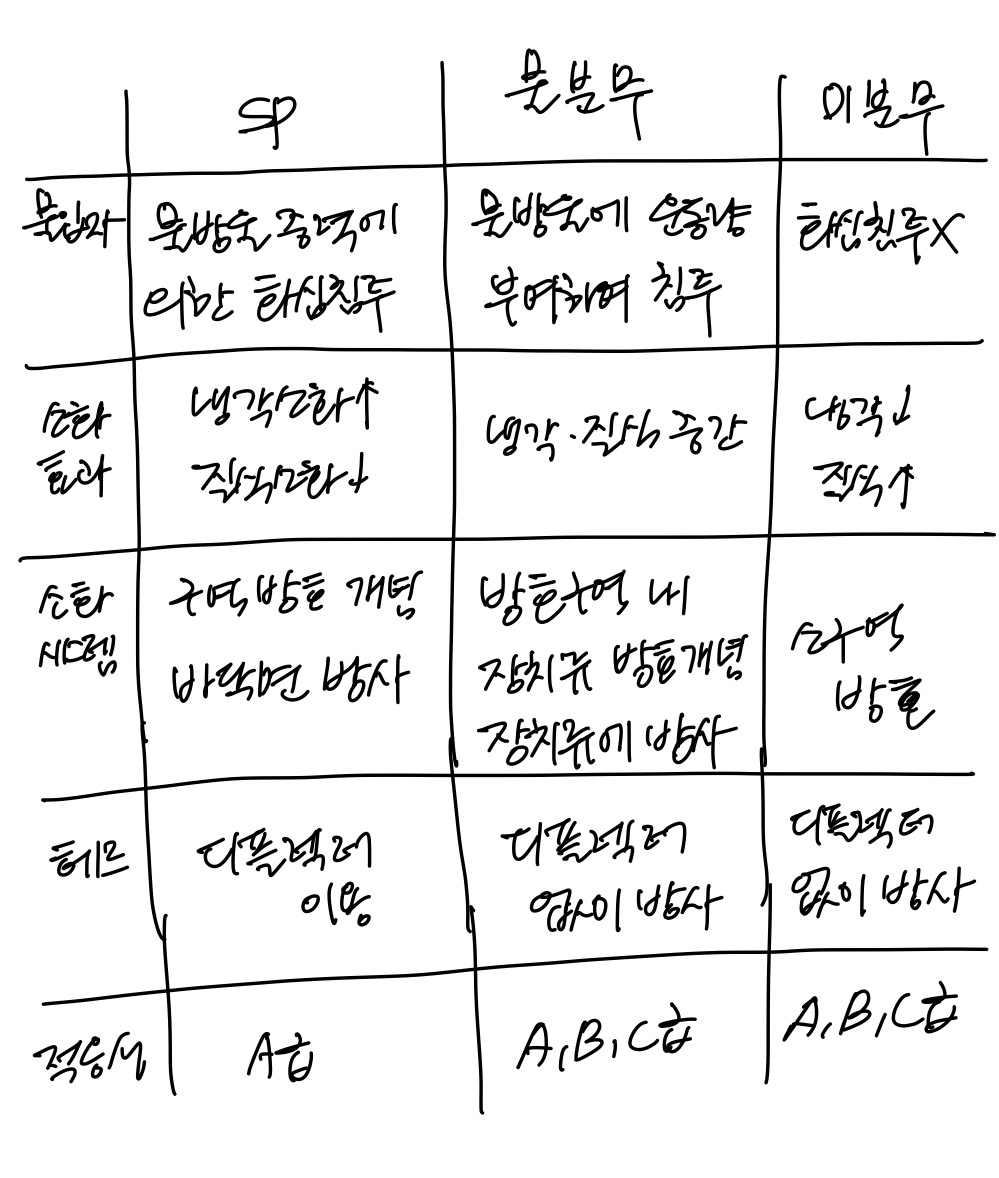 SP 물분무 미분무
물입자 물방울 중력에 물방울에 운동량 화심침투X
의한 화심침투 부여하여 침투
소화 냉각소화↑ 냉각·질식 중간 냉각↓
효과 질식소화↓ 질식↑
소화 구역방호 개념 방호구역 내 소구역
시스템 바닥면 방사 장치류 방호개념 방호
장치류에 방사
헤드 디플렉터 디플렉터 디플렉터
이용 없이 방사 없이 방사
적응성 A급 A,B,C급 A,B,C급